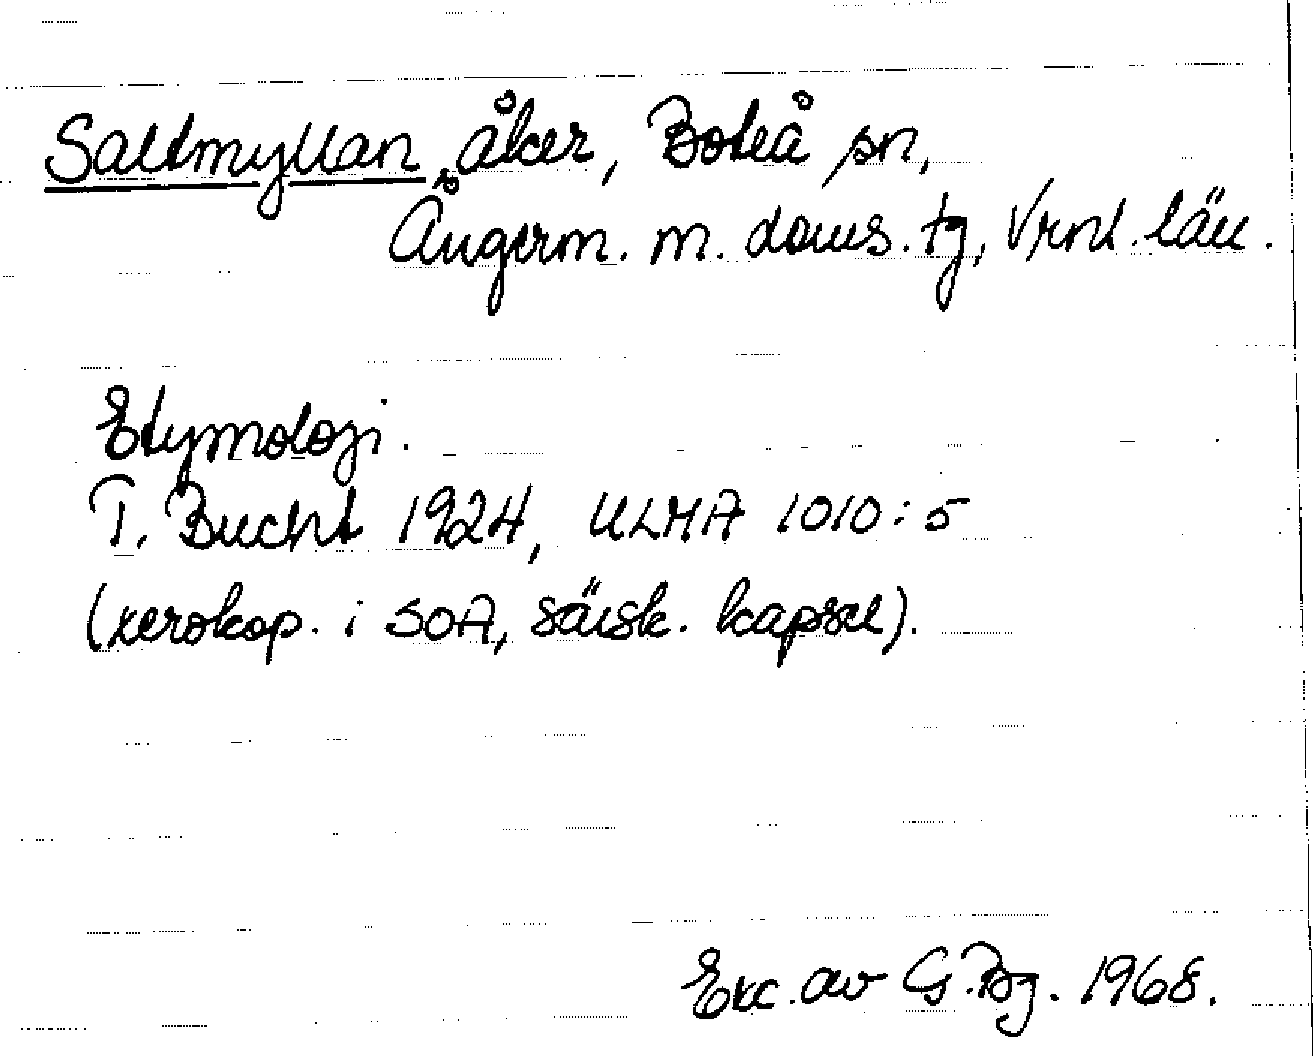 Saltmyllan åker, Boteå sn,
Ångerm. m. doms. tg, Vrnl. län.
Etymologi.
T. Bucht 1924, ULMA 1010:5
(xerokop. i SOA, särsk. kapsel).
Exc. av G. Bg. 1968.